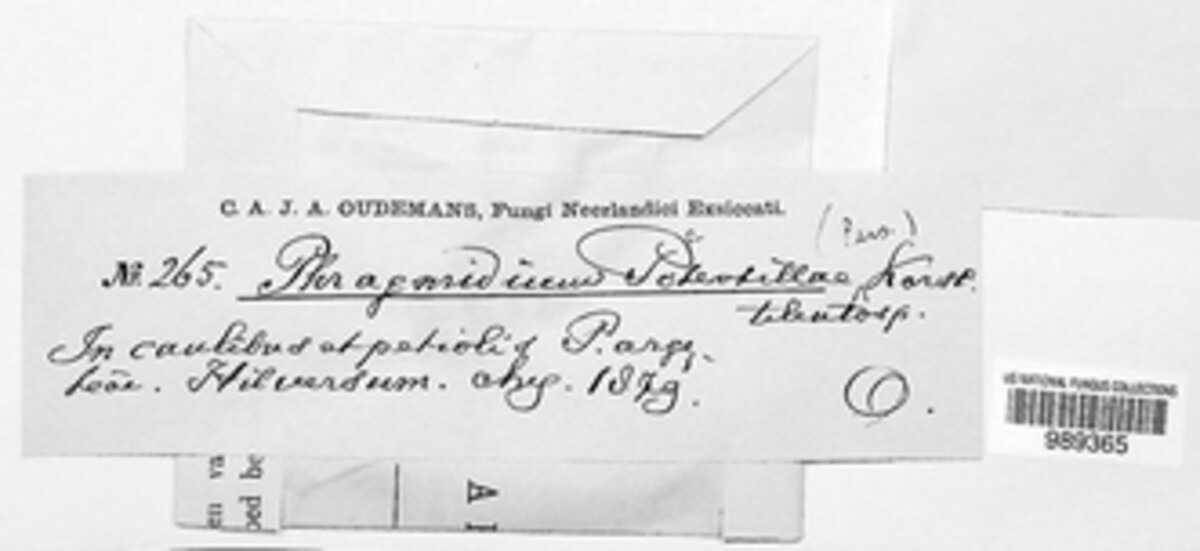 C. A. J. A. OUDEMANS, Fungi Neerlandici Exsiccati.
(Pers.)
№ 265. Phragmidium Potentillae Karst.
teleutosp.
In caulibus et petiolis P. argen-
teae. Hilversum. Aug. 1879.
O.
US NATIONAL FUNGUS COLLECTIONS
989365
en va
bed be
A